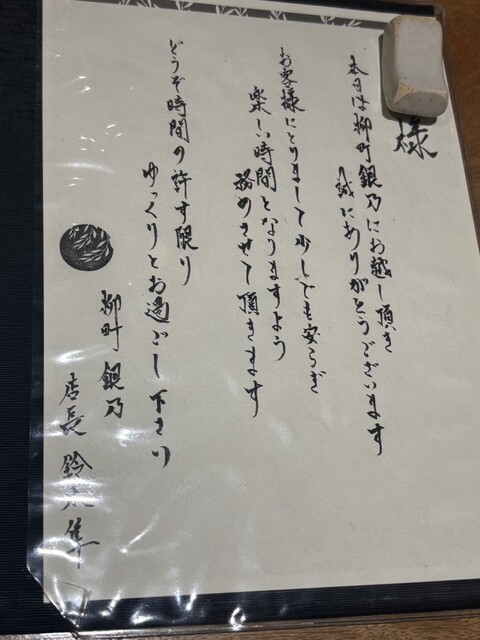 様
本日は柳町 銀乃にお越し頂き
誠にありがとうございます
お客様にとりまして少しでも安らぎ
楽しい時間となりますよう
務めさせて頂きます
どうぞ時間の許す限り
ゆっくりとお過ごし下さい
柳町 銀乃
店長 鈴木 隼